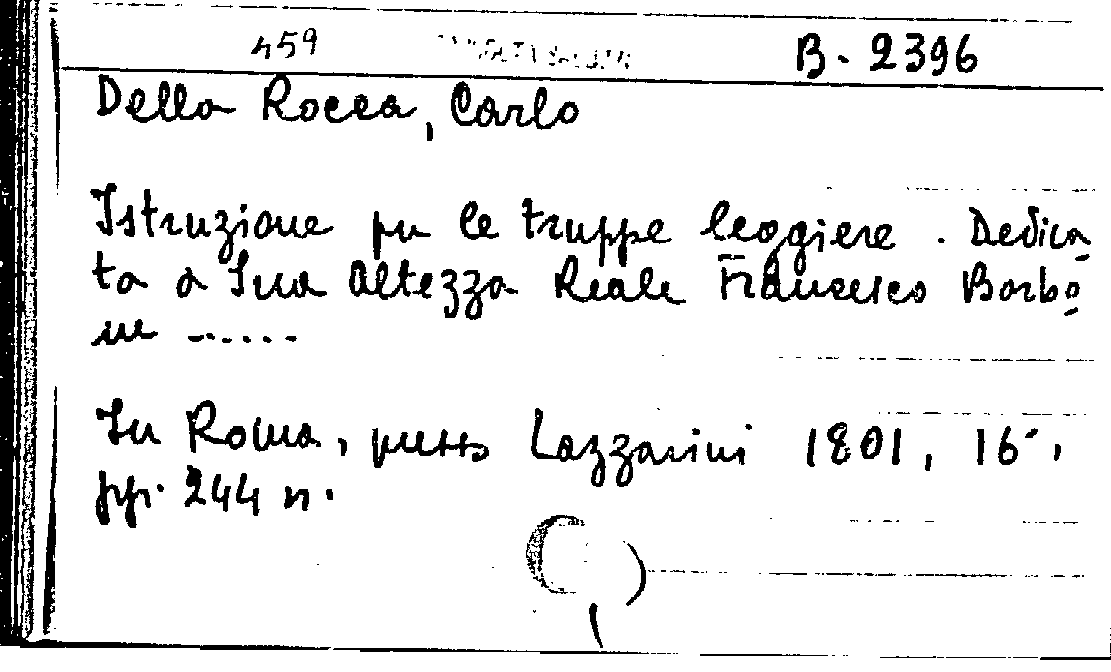 459 B. 2396
Della Rocca, Carlo
Istruzione per le truppe leggiere. Dedica
ta a Sua Altezza Reale Francesco Borbo
ne ......
In Roma, presso Lazzarini 1801, 16°,
pp. 244 n.